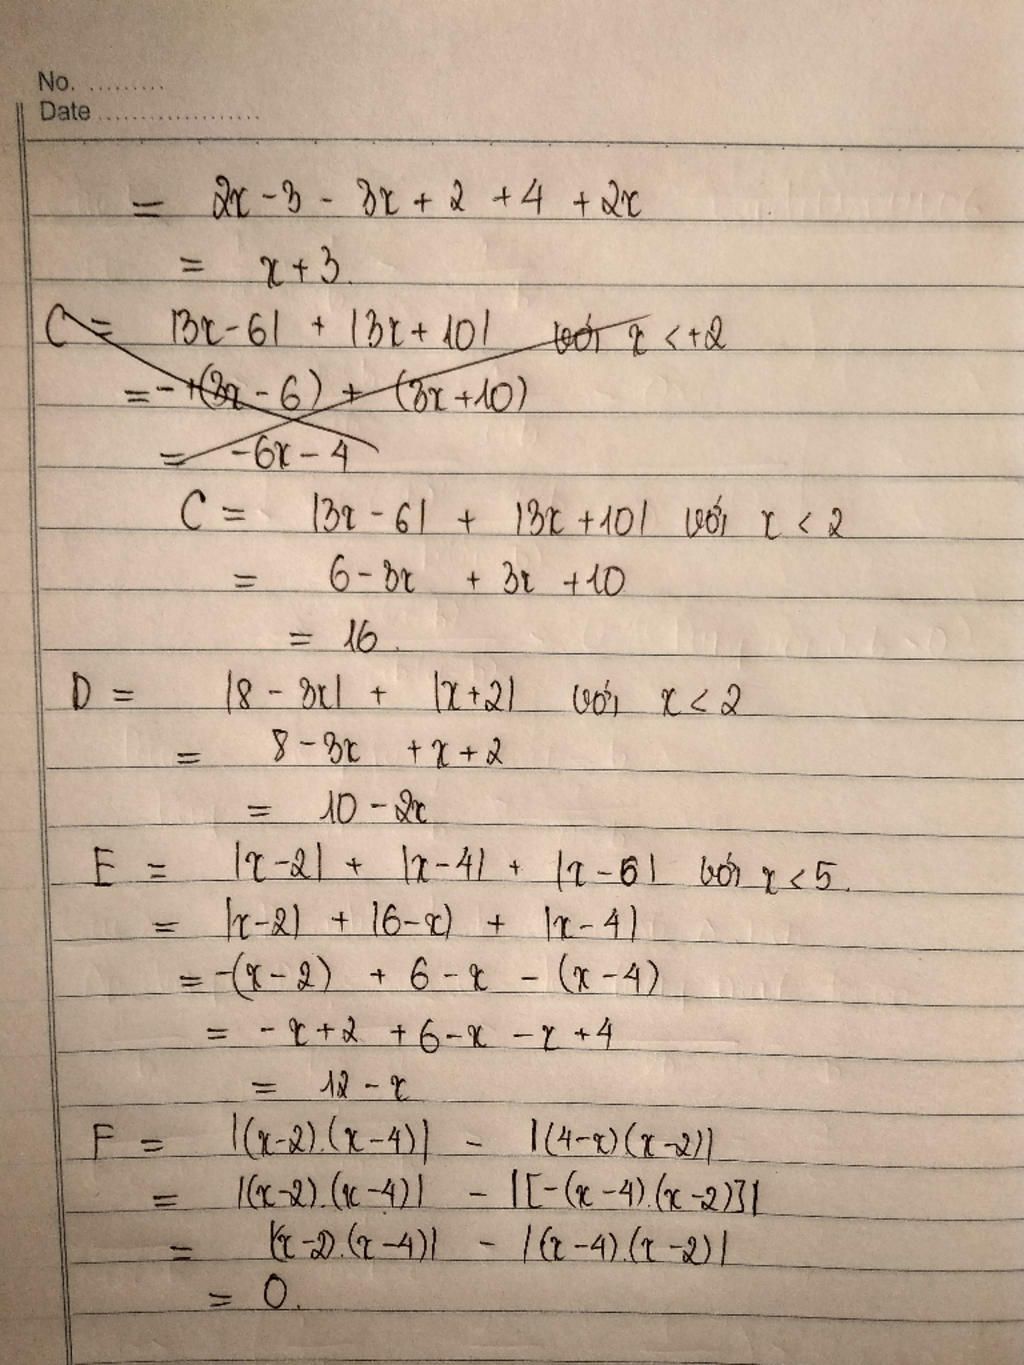 No. .........
Date ...................
= 2x - 3 - 3x + 2 + 4 + 2x
= x + 3.
C = |3x - 6| + |3x + 10| với x < +2
= - +(3x - 6) + (3x + 10)
= -6x - 4
C = |3x - 6| + |3x + 10| với x < 2
= 6 - 3x + 3x + 10
= 16.
D = |8 - 3x| + |x + 2| với x < 2
= 8 - 3x + x + 2
= 10 - 2x
E = |x - 2| + |x - 4| + |x - 6| với x < 5.
= |x - 2| + |6 - x) + |x - 4|
= -(x - 2) + 6 - x - (x - 4)
= - x + 2 + 6 - x - x + 4
= 12 - x
F = |(x - 2).(x - 4)| - |(4 - x)(x - 2)|
= |(x - 2).(x - 4)| - |[-(x - 4).(x - 2)]|
= |(x - 2).(x - 4)| - |(x - 4).(x - 2)|
= 0.